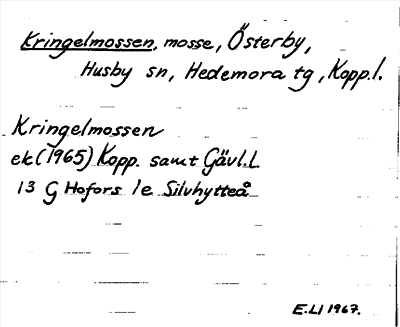 Kringelmossen, mosse, Österby,
Husby sn, Hedemora tg, Kopp.l.
Kringelmossen
ek (1965) Kopp. samt Gävl.l.
13 G Hofors 1e Silvhytteå
E.Ll 1967.